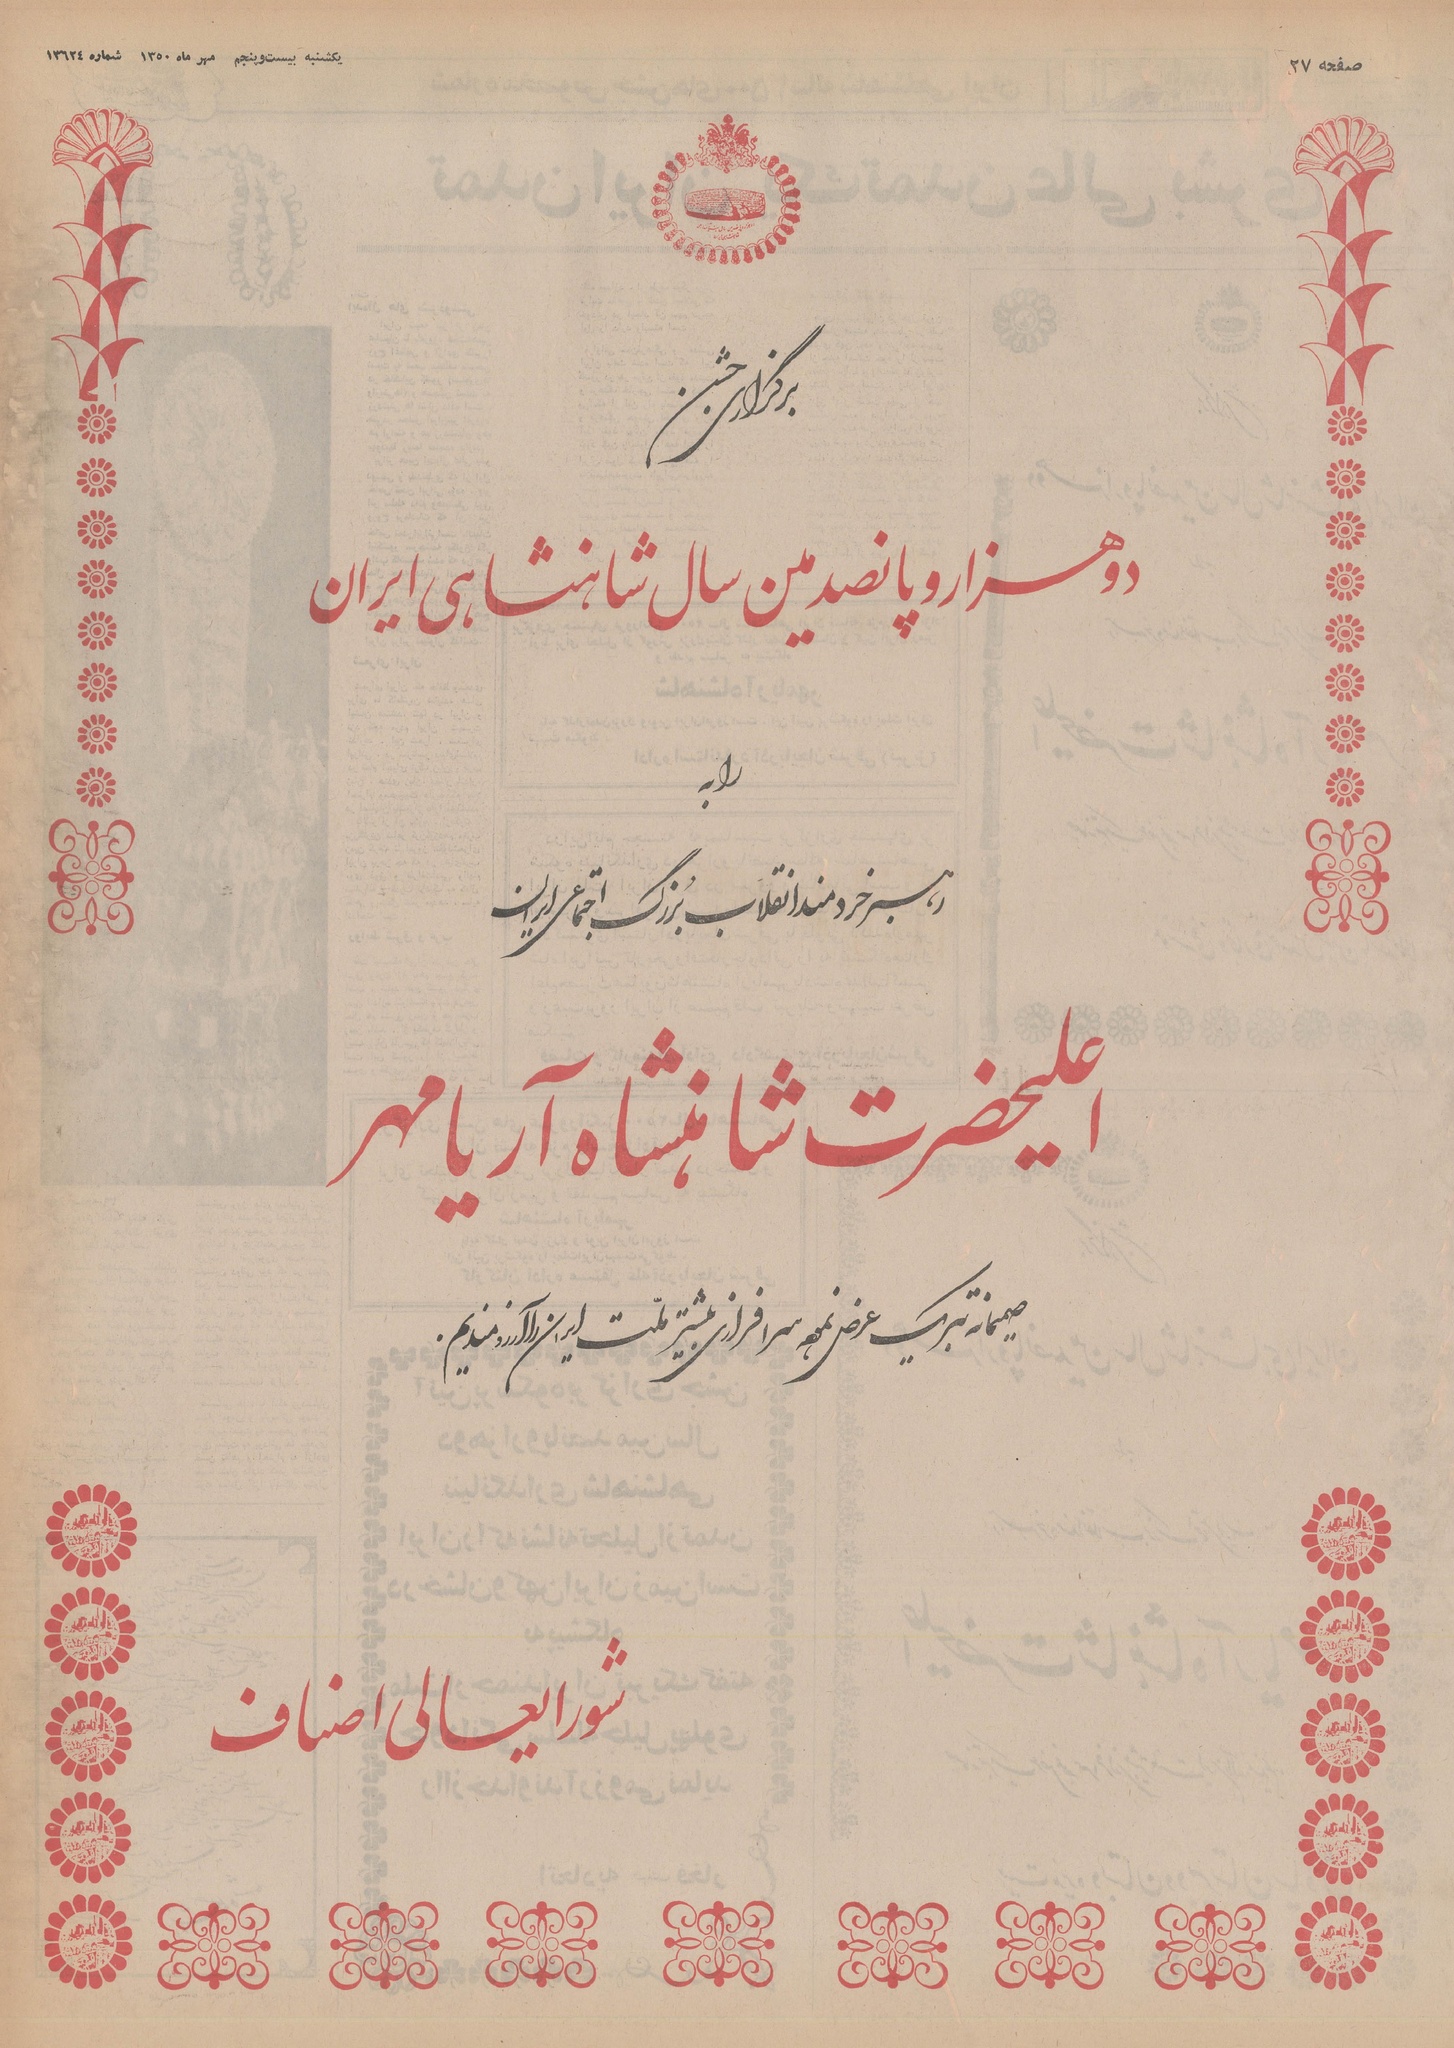 صفحه ۲۷
یکشنبه بیست‌و‌پنجم مهر ماه ۱۳۵۰ شماره ۱۳۶۲۴
برگزاری جشن
دو هزار و پانصدمین سال شاهنشاهی ایران
را به
رهبر خردمند انقلاب بزرگ اجتماعی ایران
اعلیحضرت شاهنشاه آریامهر
صمیمانه تبریک عرض نموده سرافرازی بیشتر ملّت ایران را آرزومندیم.
شورایعالی اصناف